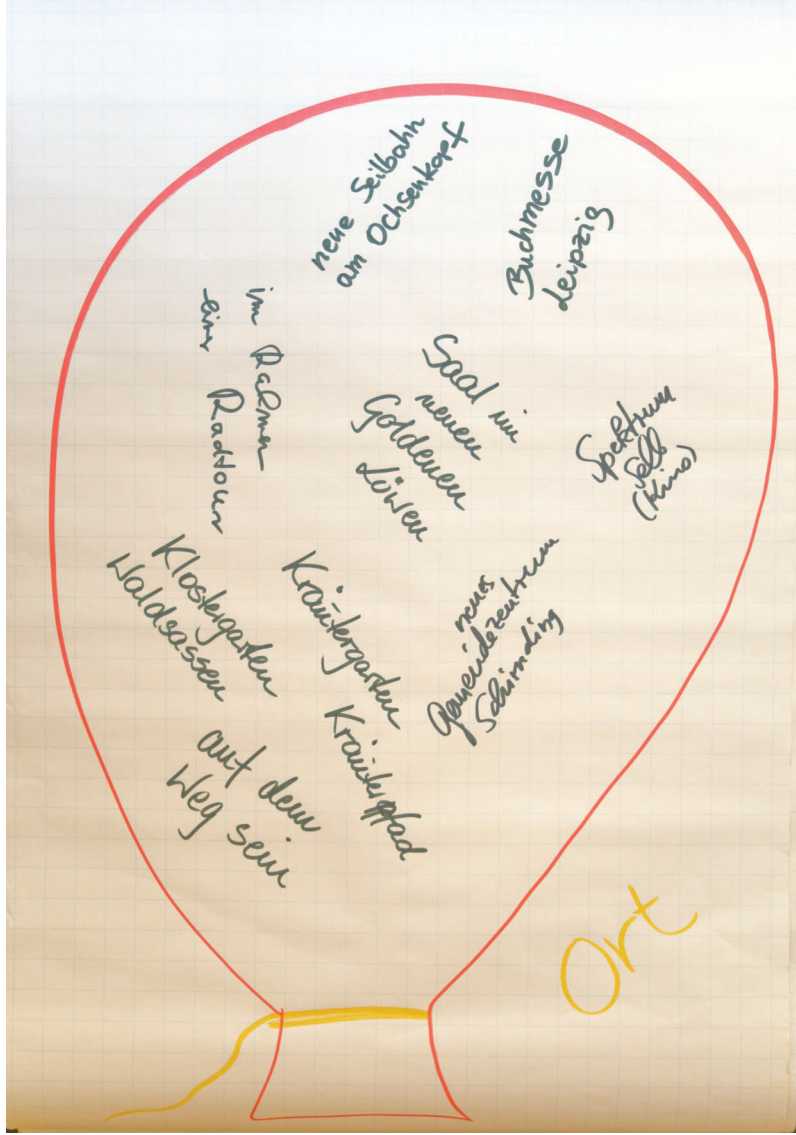 neue Seilbahn
am Ochsenkopf
Buchmesse
Leipzig
im Rahmen
einer
Radtour
Saal im
neuen
Goldenen
Löwen
Spektrum
Selb
(Kino)
Klostergarten
Waldsassen
Kräutergarten
Kräuterpfad
neues
Gemeindezentrum
Schirnding
auf dem
Weg sein
Ort